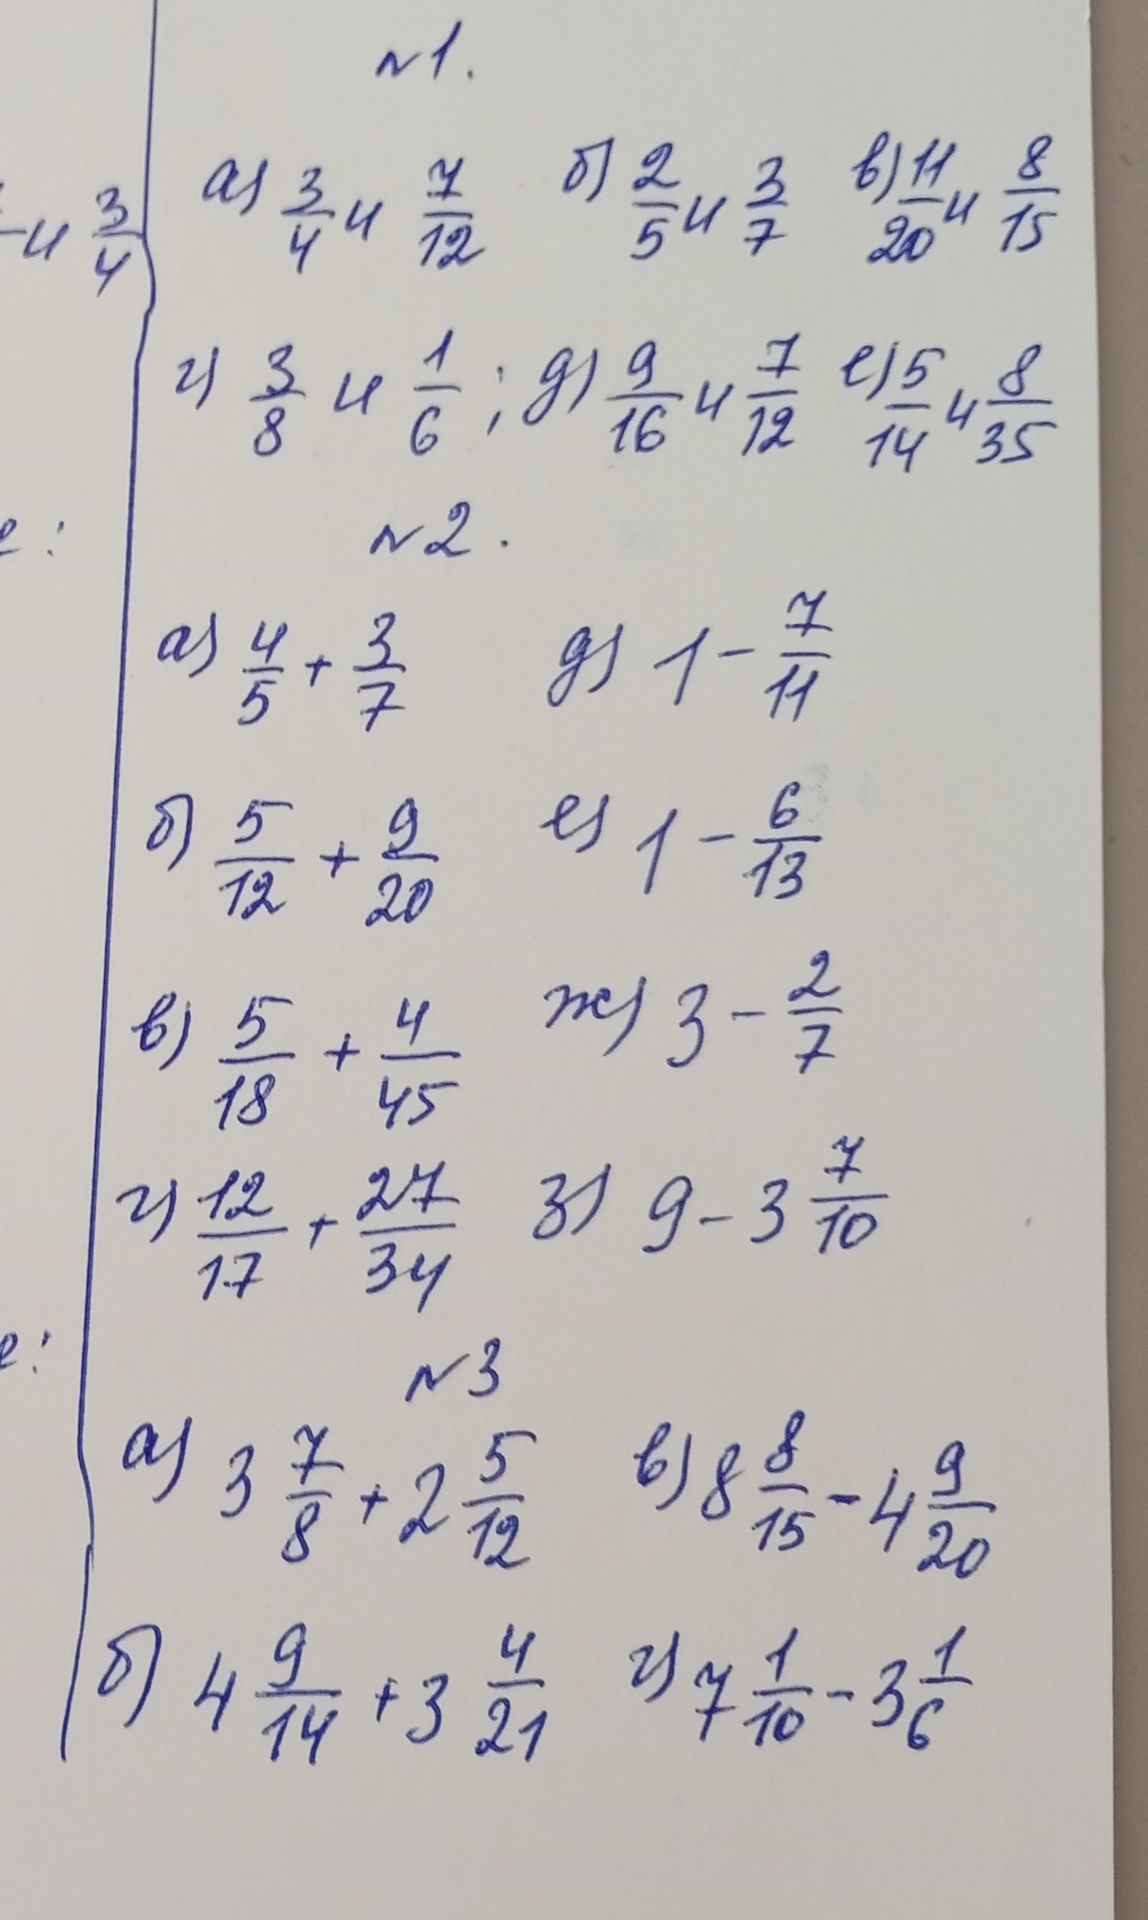 №1.
а) 3/4 и 7/12 б) 2/5 и 3/7 в) 11/20 и 8/15
и 3/4
г) 3/8 и 1/6 ; д) 9/16 и 7/12 е) 5/14 и 8/35
е: №2.
а) 4/5 + 3/7 д) 1 - 7/11
б) 5/12 + 9/20 е) 1 - 6/13
в) 5/18 + 4/45 ж) 3 - 2/7
г) 12/17 + 27/34 з) 9 - 3 7/10
е: №3
а) 3 7/8 + 2 5/12 в) 8 8/15 - 4 9/20
б) 4 9/14 + 3 4/21 г) 7 1/10 - 3 1/6